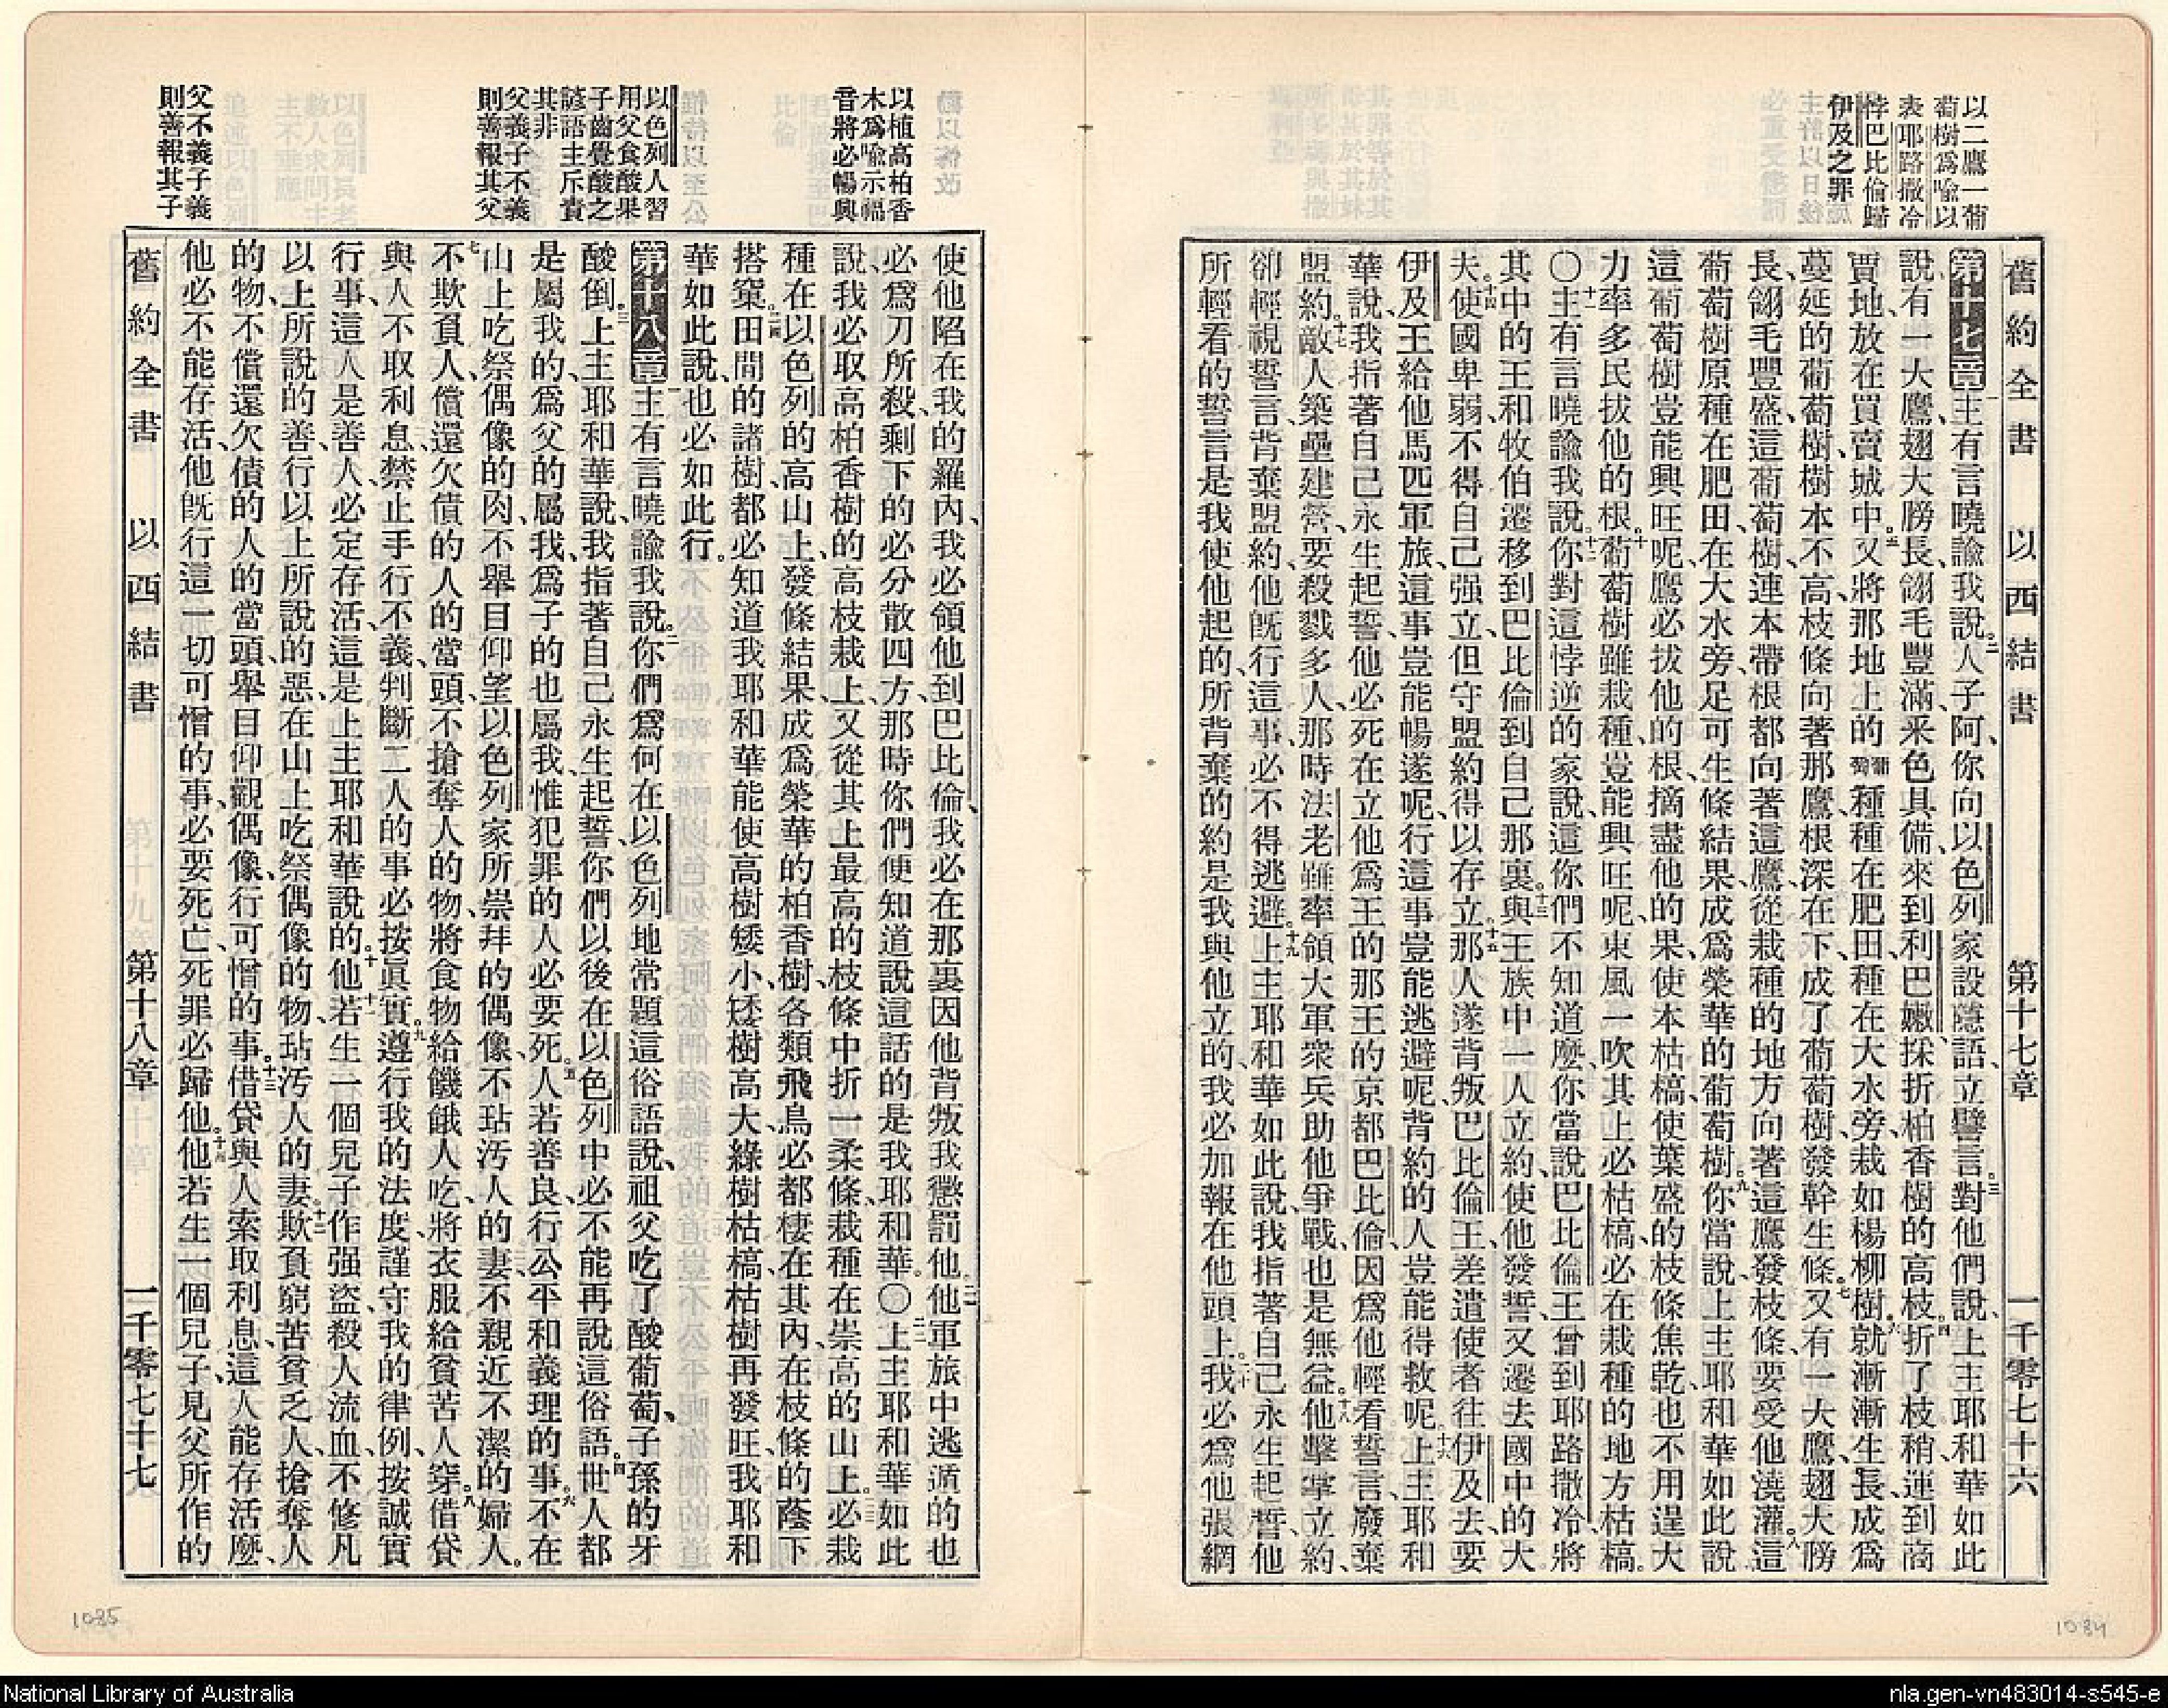 以二鷹一葡
萄樹爲喻以
表耶路撒冷
悖巴比倫歸
伊及之罪
舊約全書 以西結書 第十七章 一千零七十六
第十七章一主有言曉諭我說、二人子阿、你向以色列家設隱語、立譬言、三對他們說、上主耶和華如此
說、有一大鷹、翅大膀長、翎毛豐滿、釆色具備、來到利巴嫩、採折柏香樹的高枝、四折了枝稍、運到商
賈地、放在買賣城中、五又將那地上的葡萄種、種在肥田、種在大水旁、栽如楊柳樹、六就漸漸生長、成爲
蔓延的葡萄樹、樹本不高、枝條向著那鷹、根深在下、成了葡萄樹、發幹生條、七又有一大鷹、翅大膀
長、翎毛豐盛、這葡萄樹、連本帶根都向著這鷹、從栽種的地方向著這鷹發枝條、要受他澆灌、八這
葡萄樹原種在肥田、在大水旁、足可生條結果、成爲榮華的葡萄樹、九你當說、上主耶和華如此說
這葡萄樹豈能興旺呢、鷹必拔他的根、摘盡他的果、使本枯槁、使葉盛的枝條焦乾、也不用逞大
力率多民拔他的根、十葡萄樹雖栽種、豈能興旺呢、東風一吹其上必枯槁、必在栽種的地方枯槁。
〇十一主有言曉諭我說、十二你對這悖逆的家說、這你們不知道麼、你當說、巴比倫王曾到耶路撒冷、將
其中的王和牧伯遷移到巴比倫、到自己那裏、十三與王族中一人立約、使他發誓、又遷去國中的大
夫、十四使國卑弱、不得自己强立、但守盟約得以存立、十五那人遂背叛巴比倫王、差遣使者往伊及去、要
伊及王給他馬匹軍旅、這事豈能暢遂呢、行這事豈能逃避呢、背約的人豈能得救呢、十六上主耶和
華說、我指著自己永生起誓、他必死在立他爲王的那王的京都巴比倫、因爲他輕看誓言、廢棄
盟約、十七敵人築壘建營、要殺戮多人、那時法老雖率領大軍衆兵助他爭戰、也是無益、十八他擊掌立約、
卻輕視誓言、背棄盟約、他旣行這事、必不得逃避、十九上主耶和華如此說、我指著自己永生起誓、他
所輕看的誓言、是我使他起的、所背棄的約、是我與他立的、我必加報在他頭上、二十我必爲他張網
以植高柏香
木爲喻示福
音將必暢興
以色列人習
用父食酸果
子齒覺酸之
諺語主斥責
其非
父義子不義
則善報其父
父不義子義
則善報其子
使他陷在我的羅內、我必領他到巴比倫、我必在那裏因他背叛我懲罰他、二一他軍旅中逃遁的也
必爲刀所殺、剩下的必分散四方、那時你們便知道說這話的是我耶和華。〇二二上主耶和華如此
說、我必取高柏香樹的高枝栽上、又從其上最高的枝條中折一柔條、栽種在崇高的山上、二三必栽
種在以色列的高山上、發條結果、成爲榮華的柏香樹、各類飛鳥必都棲在其內、在枝條的蔭下
搭窠、二四田間的諸樹都必知道我耶和華能使高樹矮小、矮樹高大、綠樹枯槁、枯樹再發旺、我耶和
華如此說、也必如此行。
第十八章一主有言曉諭我說、二你們爲何在以色列地常題這俗語說、祖父吃了酸葡萄、子孫的牙
酸倒、三上主耶和華說、我指著自己永生起誓、你們以後在以色列中必不能再說這俗語、四世人都
是屬我的、爲父的屬我、爲子的也屬我、惟犯罪的人必要死、五人若善良、行公平和義理的事、六不在
山上吃祭偶像的肉、不舉目仰望以色列家所崇拜的偶像、不玷汚人的妻、不親近不潔的婦人。
七不欺負人、償還欠債的人的當頭、不搶奪人的物、將食物給饑餓人吃、將衣服給貧苦人穿、八借貸
與人不取利息、禁止手行不義、判斷二人的事必按眞實、九遵行我的法度、謹守我的律例、按誠實
行事、這人是善人、必定存活、這是上主耶和華說的、十他若生一個兒子、作强盜、殺人流血、不修凡
以上所說的善、行以上所說的惡、十一在山上吃祭偶像的物、玷汚人的妻、十二欺負窮苦貧乏人、搶奪人
的物、不償還欠債的人的當頭、舉目仰觀偶像、行可憎的事、十三借貸與人索取利息、這人能存活麼、
他必不能存活、他旣行這一切可憎的事、必要死亡、死罪必歸他、十四他若生一個兒子、見父所作的
舊約全書 以西結書 第十八章 一千零七十七
1085
1084
National Library of Australia
nla.gen-vn483014-s545-e